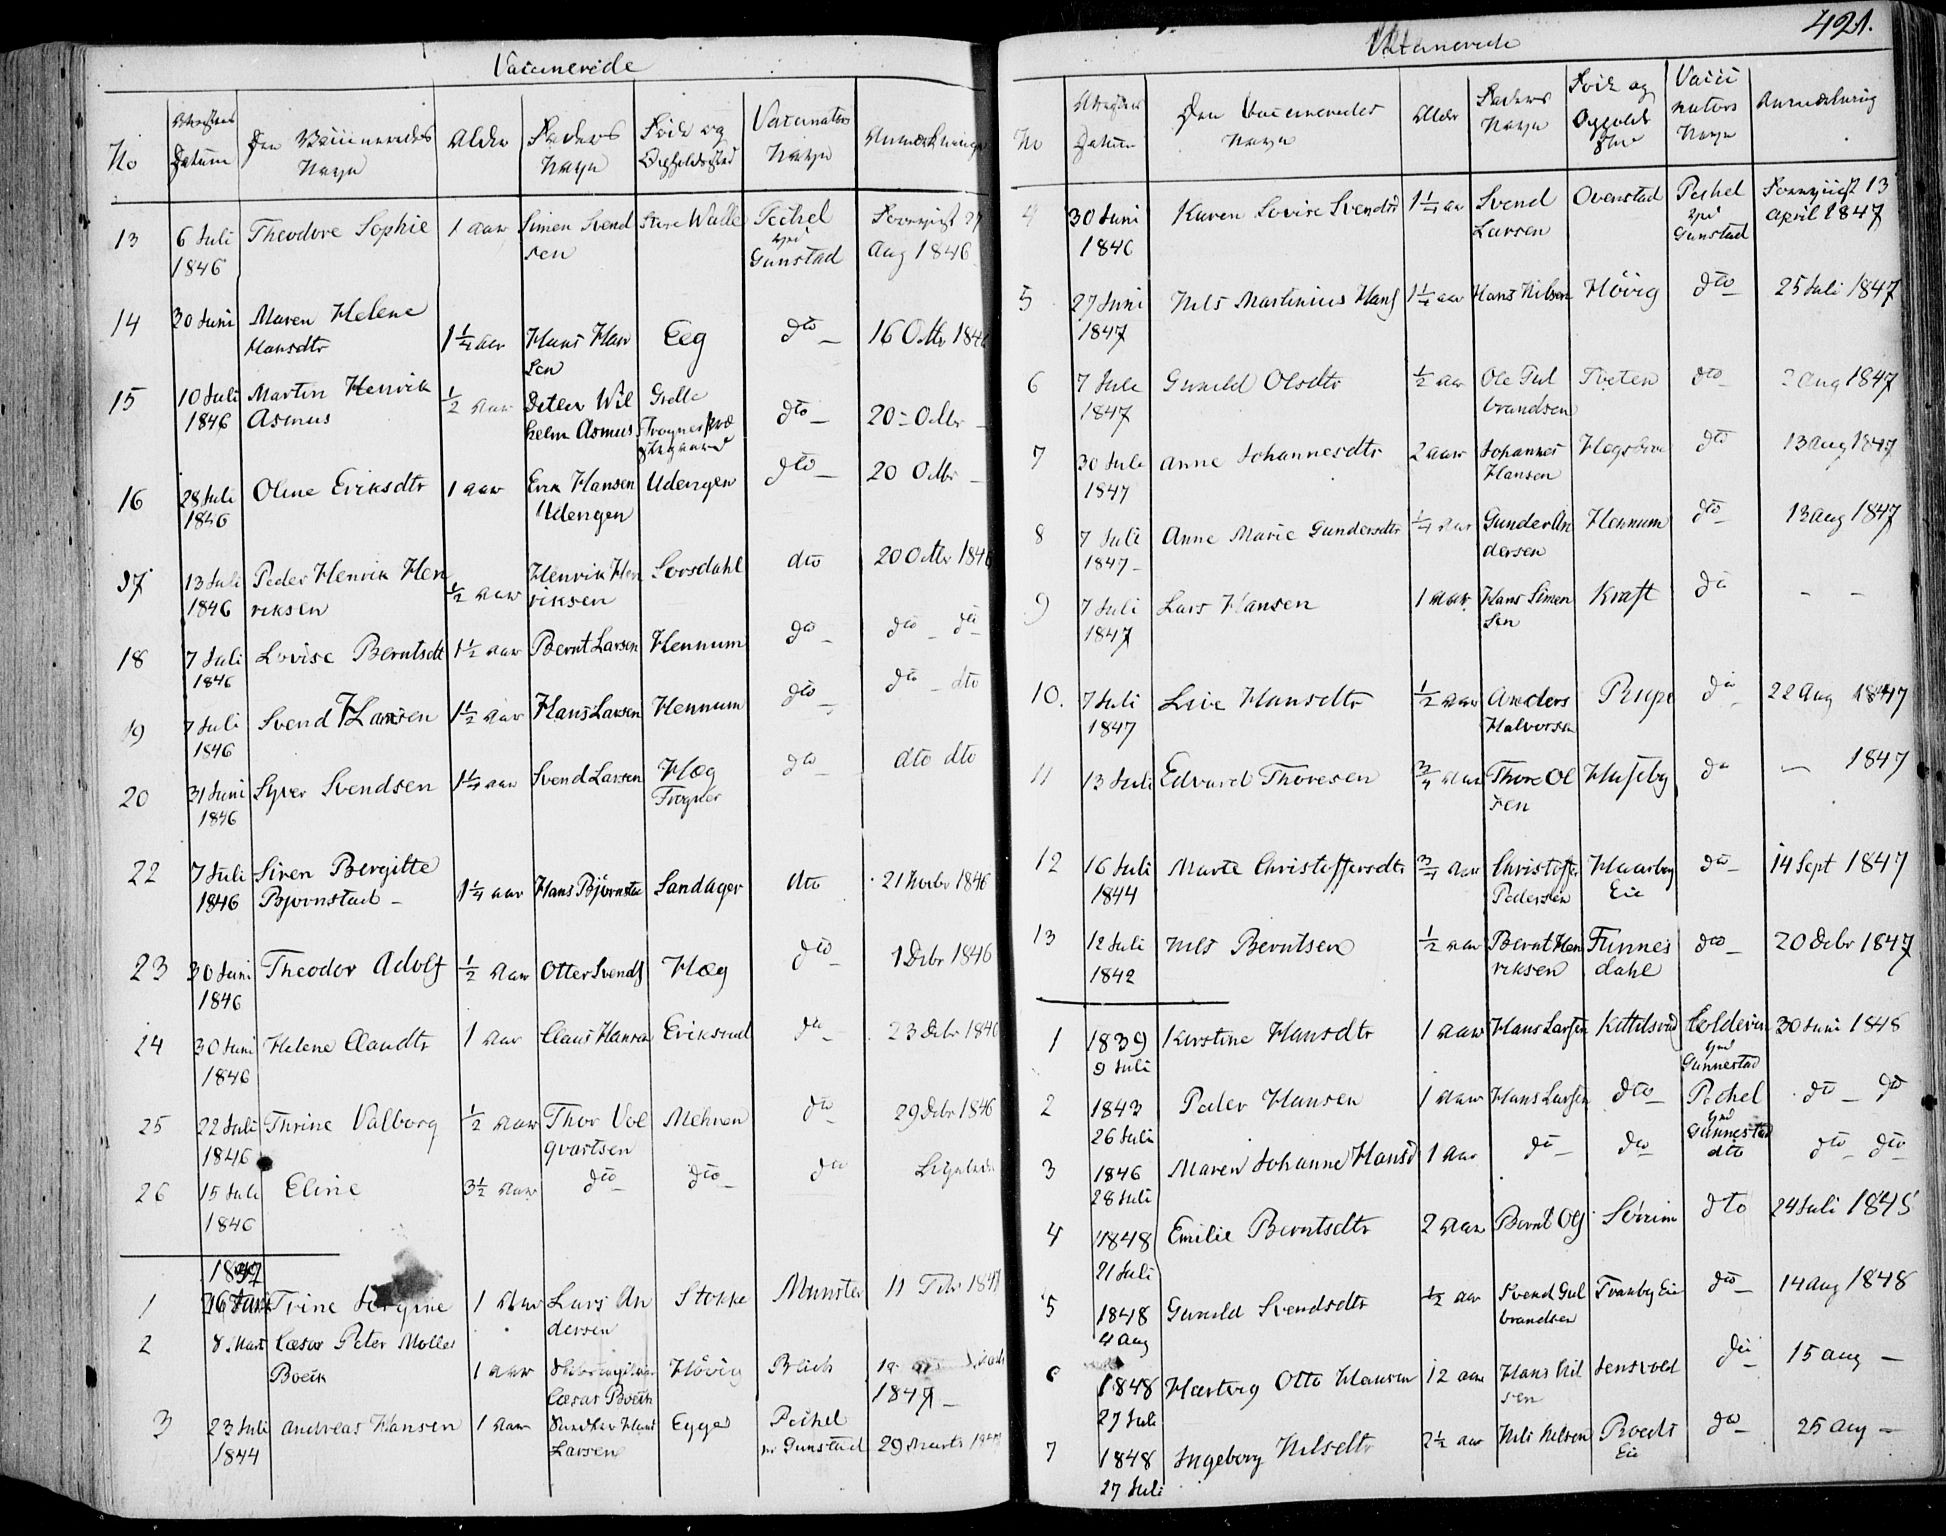 Vaccinerede
No Attestens Datum Den Vaccineredes Navn Alder Faders Navn Føde og Opholdssted Vaccinators Navn Anmærkninger
13 6 Juli 1846 Theodore Sophie 1 Aar Simen Svendsen Store Walle Pechel ved Gunstad Aug 1846
14 30 Juni Maren Helene Hansdtr 1¼ aar Hans Hansen Eeg dto 16 Octbr 1846
15 10 Juli 1846 Martin Henrik Asmus ½ Aar Detlev Wilhelm Asmus dto 20 Octbr
16 28 Juli 1846 Oline Eriksdtr 1 aar Erik Hansen Udengen Udengen dto 20 Octbr
17 13 Juli 1846 Peder Henrik Henriksen ½ Aar Henrik Henriksen Sorsdahl dto 20 Octbr 1846
18 7 Juli 1846 Lovise Berntsdtr 1½ Aar Bernt Larsen Hennum dto dto dto
19 7 Juli 1846 Svend Hansen 1½ Aar Hans Larsen Hennum dto dto dto
20 31 Juni 1846 Syver Svendsen 1¼ aar Svend Larsen Hæg Frogner dto dto dto
22 7 Juli 1846 Siren Bergitte Bjørnstad 1¼ aar Hans Bjørnsta Sandager dto 21 Novbr 1846
23 30 Juni 1846 Theodor Adolf ½ Aar Otter Svends Hæg dto 1 Debr 1846
24 30 Juni 1846 Helene Claudtr 1 Aar Claus Hansen Eriksrud dto 23 Debr 1846
25 22 Juli 1846 Thrine Valborg ½ Aar Thor Volqvartsen Mehren dto 29 Debr 1846
26 15 Juli 1846 Eline 3½ Aar dto dto dto Ligeledes
1 Trine 1 Aar Lars Andersen Stokke Munster 11 Febr 1847
2 8 Mart Cæsar Peter Møller Boeck 1 aar Cæsar Boeck Høvig 1847
3 23 Juli 1844 Andreas Hansen 1 Aar Larsen Egge Pechel Gunstad 29 Marts 1847
421.
Vaccinerede
No Attestens Datum Den Vaccineredes Navn Alder Faders Navn Føde og Opholdssted Vaccinators Navn Anmærkning
4 30 Juni 1846 Karen Lovise Svendsd 1¼ aar Svend Larsen Ovenstad Pechel ved Gunstad 13 April 1847
5 27 Juni 1847 Nils Martinius Hans 1¼ aar Hans Nilsen Høvig dto 25 Juli 1847
6 7 Juli 1847 Gunild Olsdtr ½ aar Ole Gulbrandsen Tveten dto 2 Aug 1847
7 30 Juli 1847 Anne Johannesdtr 2 aar Johannes Hansen dto 13 Aug 1847
8 7 Juli 1847 Anne Marie Gundersdtr ¼ Aar Gunder Andersen Hennum dto 13 Aug 1847
9 7 Juli 1847 Lars Hansen 1 Aar Hans Simensen Kraft do – –
10. 7 Juli 1847 Live Hansdtr ½ Aar Anders Halvorsen do 22 Aug 1847
11 13 Juli Edvard Thoresen ¾ Aar Thore Olsen Huseby do — 1847
12 16 Juli 1844 Marte Christoffersdtr ¾ Aar Christoffer Pedersen Haarby Eie dto 14 Sept 1847
13 12 Juli 1842 Nils Berntsen ½ Aar Bernt Henriksen Finnesdahl dto 20 Debr 1847
1 1839 9 Juli Kirstine Hansdtr 1 Aar Hans Larsen Kittilsrud ved Gunnestad 30 Juni 1848
2 1843 26 Juli Peder Hansen 1 Aar Hans Larsen dto Pechel ved Gunnestad dto dto
3 1846 28 Juli Maren Johanne Hansd 1 Aar dto dto dto dto dto
4 1848 21 Juli Emilie Berntsdtr 2 Aar Bernt Ols dto 24 Juli 1848
5 1848 4 Aug Gunild Svendsdtr ½ aar Svend Gulbrandsen Tranby Eie dto 14 Aug 1848
6 1848 27 Juli Hartvig Otto Hansen 12 aar Hans Nilsen Jensvold do 15 Aug —
7 1848 27 Juli Ingeborg Nilsdtr 2½ aar Nils Nilsen Eie do 25 Aug —